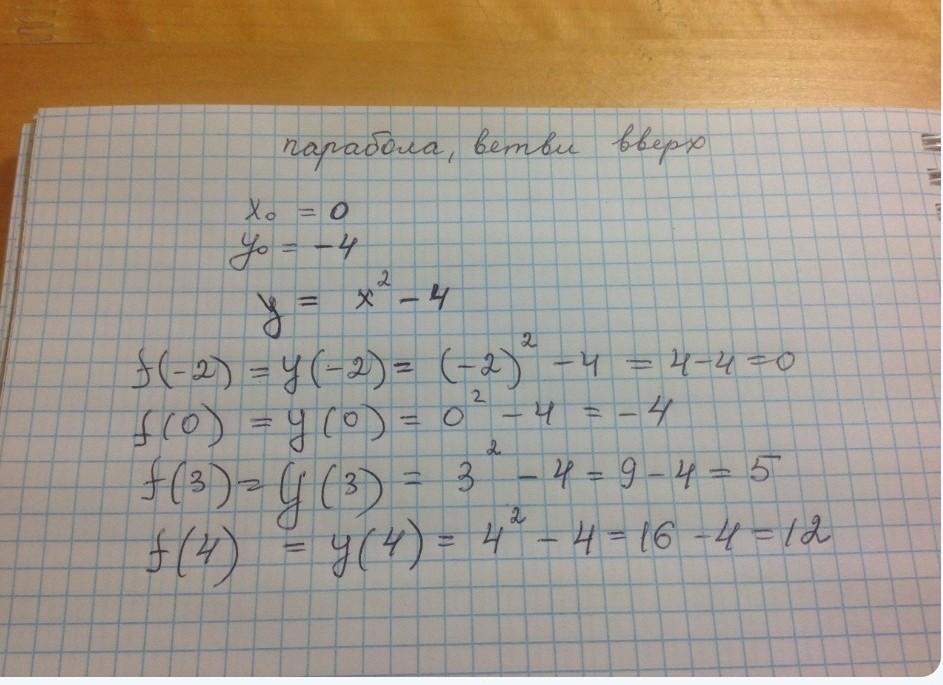 парабола, ветви вверх
x₀ = 0
y₀ = -4
y = x² - 4
f(-2) = y(-2) = (-2)² - 4 = 4-4 = 0
f(0) = y(0) = 0² - 4 = -4
f(3) = y(3) = 3² - 4 = 9 - 4 = 5
f(4) = y(4) = 4² - 4 = 16 - 4 = 12